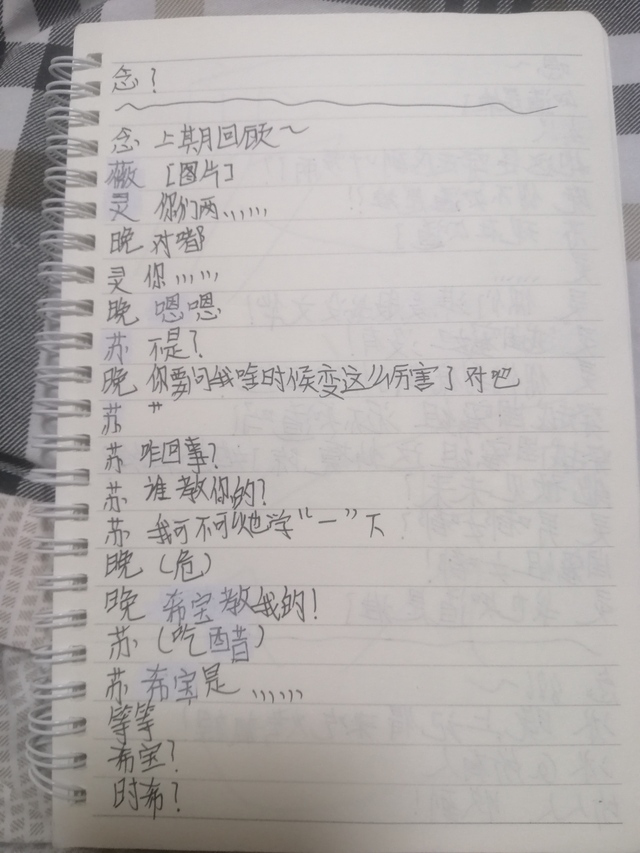 念？
念 上期回顾～
薇 [图片]
灵 你们两,,,,,,
晚 对嘟
灵 你,,,,,,
晚 嗯嗯
苏 不是？
晚 你要问我啥时候变这么厉害了对吧
苏 "
苏 咋回事？
苏 谁教你的？
苏 我可不可以也学“一”下
晚 （危）
晚 希宝教我的！
苏 （吃醋）
苏 希宝是,,,,,,
等等
希宝？
时希？